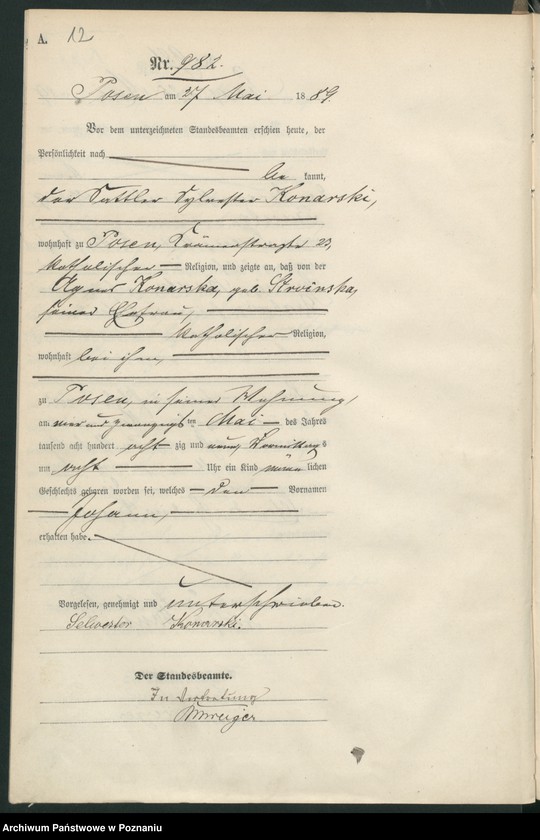 A. 12
Nr. 982.
Posen am 27 Mai 1889.
Vor dem unterzeichneten Standesbeamten erschien heute, der
Persönlichkeit nach
be kannt,
der Sattler Sylvester Konarski,
wohnhaft zu Posen, Krämerstraße 23,
katholischer Religion, und zeigte an, daß von der
Agnes Konarska, geb. Stroinska,
seiner Ehefrau,
katholischer Religion,
wohnhaft bei ihm,
zu Posen, in seiner Wohnung,
am vier und zwanzigsten Mai des Jahres
tausend acht hundert acht zig und neun, Vormittags
um acht Uhr ein Kind männ lichen
Geschlechts geboren worden sei, welches den Vornamen
Johann,
erhalten habe.
Vorgelesen, genehmigt und unterschrieben.
Selwester Konarski.
Der Standesbeamte.
In Vertretung
Archiwum Państwowe w Poznaniu